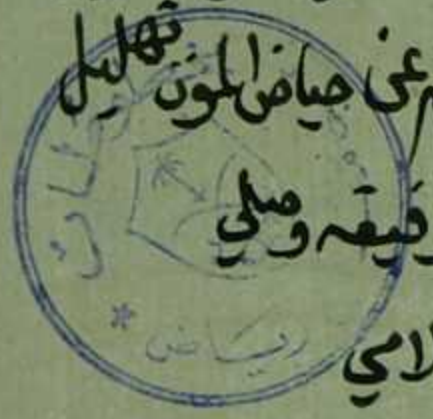 م عن حياض الموت تهليل
وفيقه وصلي
لامي
رياض